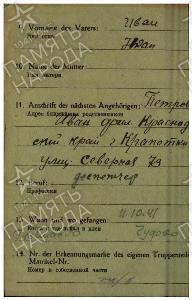 9. Vorname des Vaters: Иван
Имя отца Иван
10. Name der Mutter:
Имя матери
11. Anschrift der nächsten Angehörigen: Петров
Адрес ближайших родственников
Иван Фил. Краснод
ский край г. Кропотки
улиц. Северная 73
12. Beruf: диспетчер
Профессия
13. Wann und wo gefangen: 11.10.41
Чудово
14. Nr. der Erkennungsmarke des eigenen Truppenteils
Matrikel-Nr.
Номер в собственной части